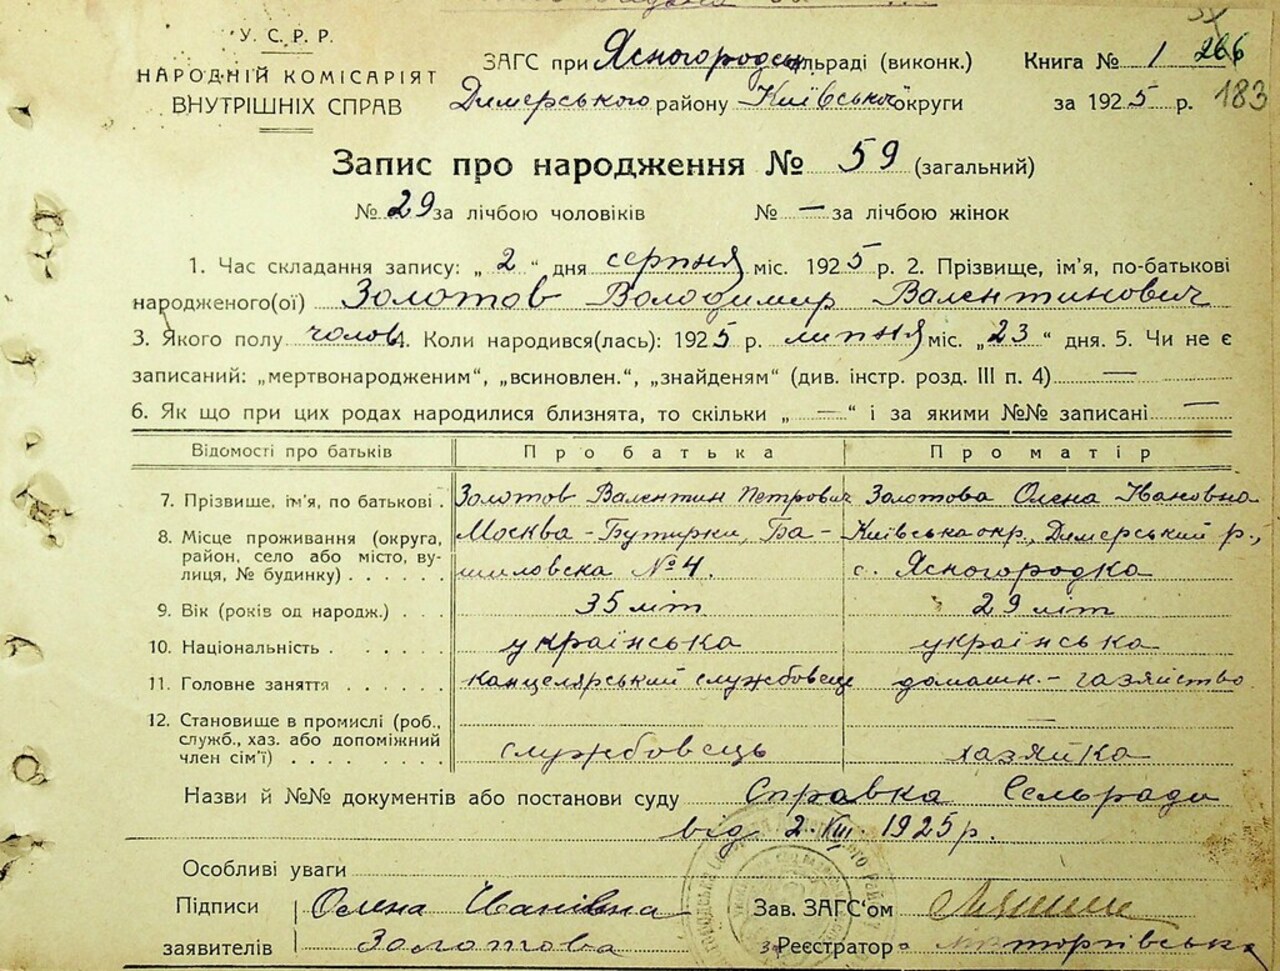 У. С. Р. Р.
НАРОДНІЙ КОМІСАРІЯТ
ВНУТРІШНІХ СПРАВ
ЗАГС при Ясногородськ ільраді (виконк.)
Димерського району Київської округи
Книга № 1 266
за 1925 р. 183
Запис про народження № 59 (загальний)
№ 29 за лічбою чоловіків № — за лічбою жінок
1. Час складання запису: „ 2 “ дня серпня міс. 1925 р. 2. Прізвище, ім'я, по-батькові
народженого(ої) Золотов Володимир Валентинович
3. Якого полу чолов. 4. Коли народився(лась): 1925 р. липня міс. „23“ дня. 5. Чи не є
записаний: „мертвонародженим“, „всиновлен.“, „знайденям“ (див. інстр. розд. III п. 4) —
6. Як що при цих родах народилися близнята, то скільки „ — “ і за якими №№ записані —
Відомості про батьків Про батька Про матір
7. Прізвище, ім'я, по батькові . Золотов Валентин Петрович Золотова Олена Івановна
8. Місце проживання (округа, Москва - Бутирки, Ба- Київська окр., Димерський р.,
район, село або місто, ву-
лиця, № будинку) . . . . . . шиловска № 4. с. Ясногородка
9. Вік (років од народж.) . . . 35 літ 29 літ
10. Національність . . . . . . українська українська
11. Головне заняття . . . . . . канцелярський службовець домашн. - газяйство
12. Становище в промислі (роб., —
служб., хаз. або допоміжний
член сім'ї) . . . . . . . . службовець хазяйка
Назви й №№ документів або постанови суду Справка Сельради
від 2.VIII 1925 р.
Особливі уваги
Підписи Олена Іванівна Зав. ЗАГС'ом
заявителів Золотова Реєстратор